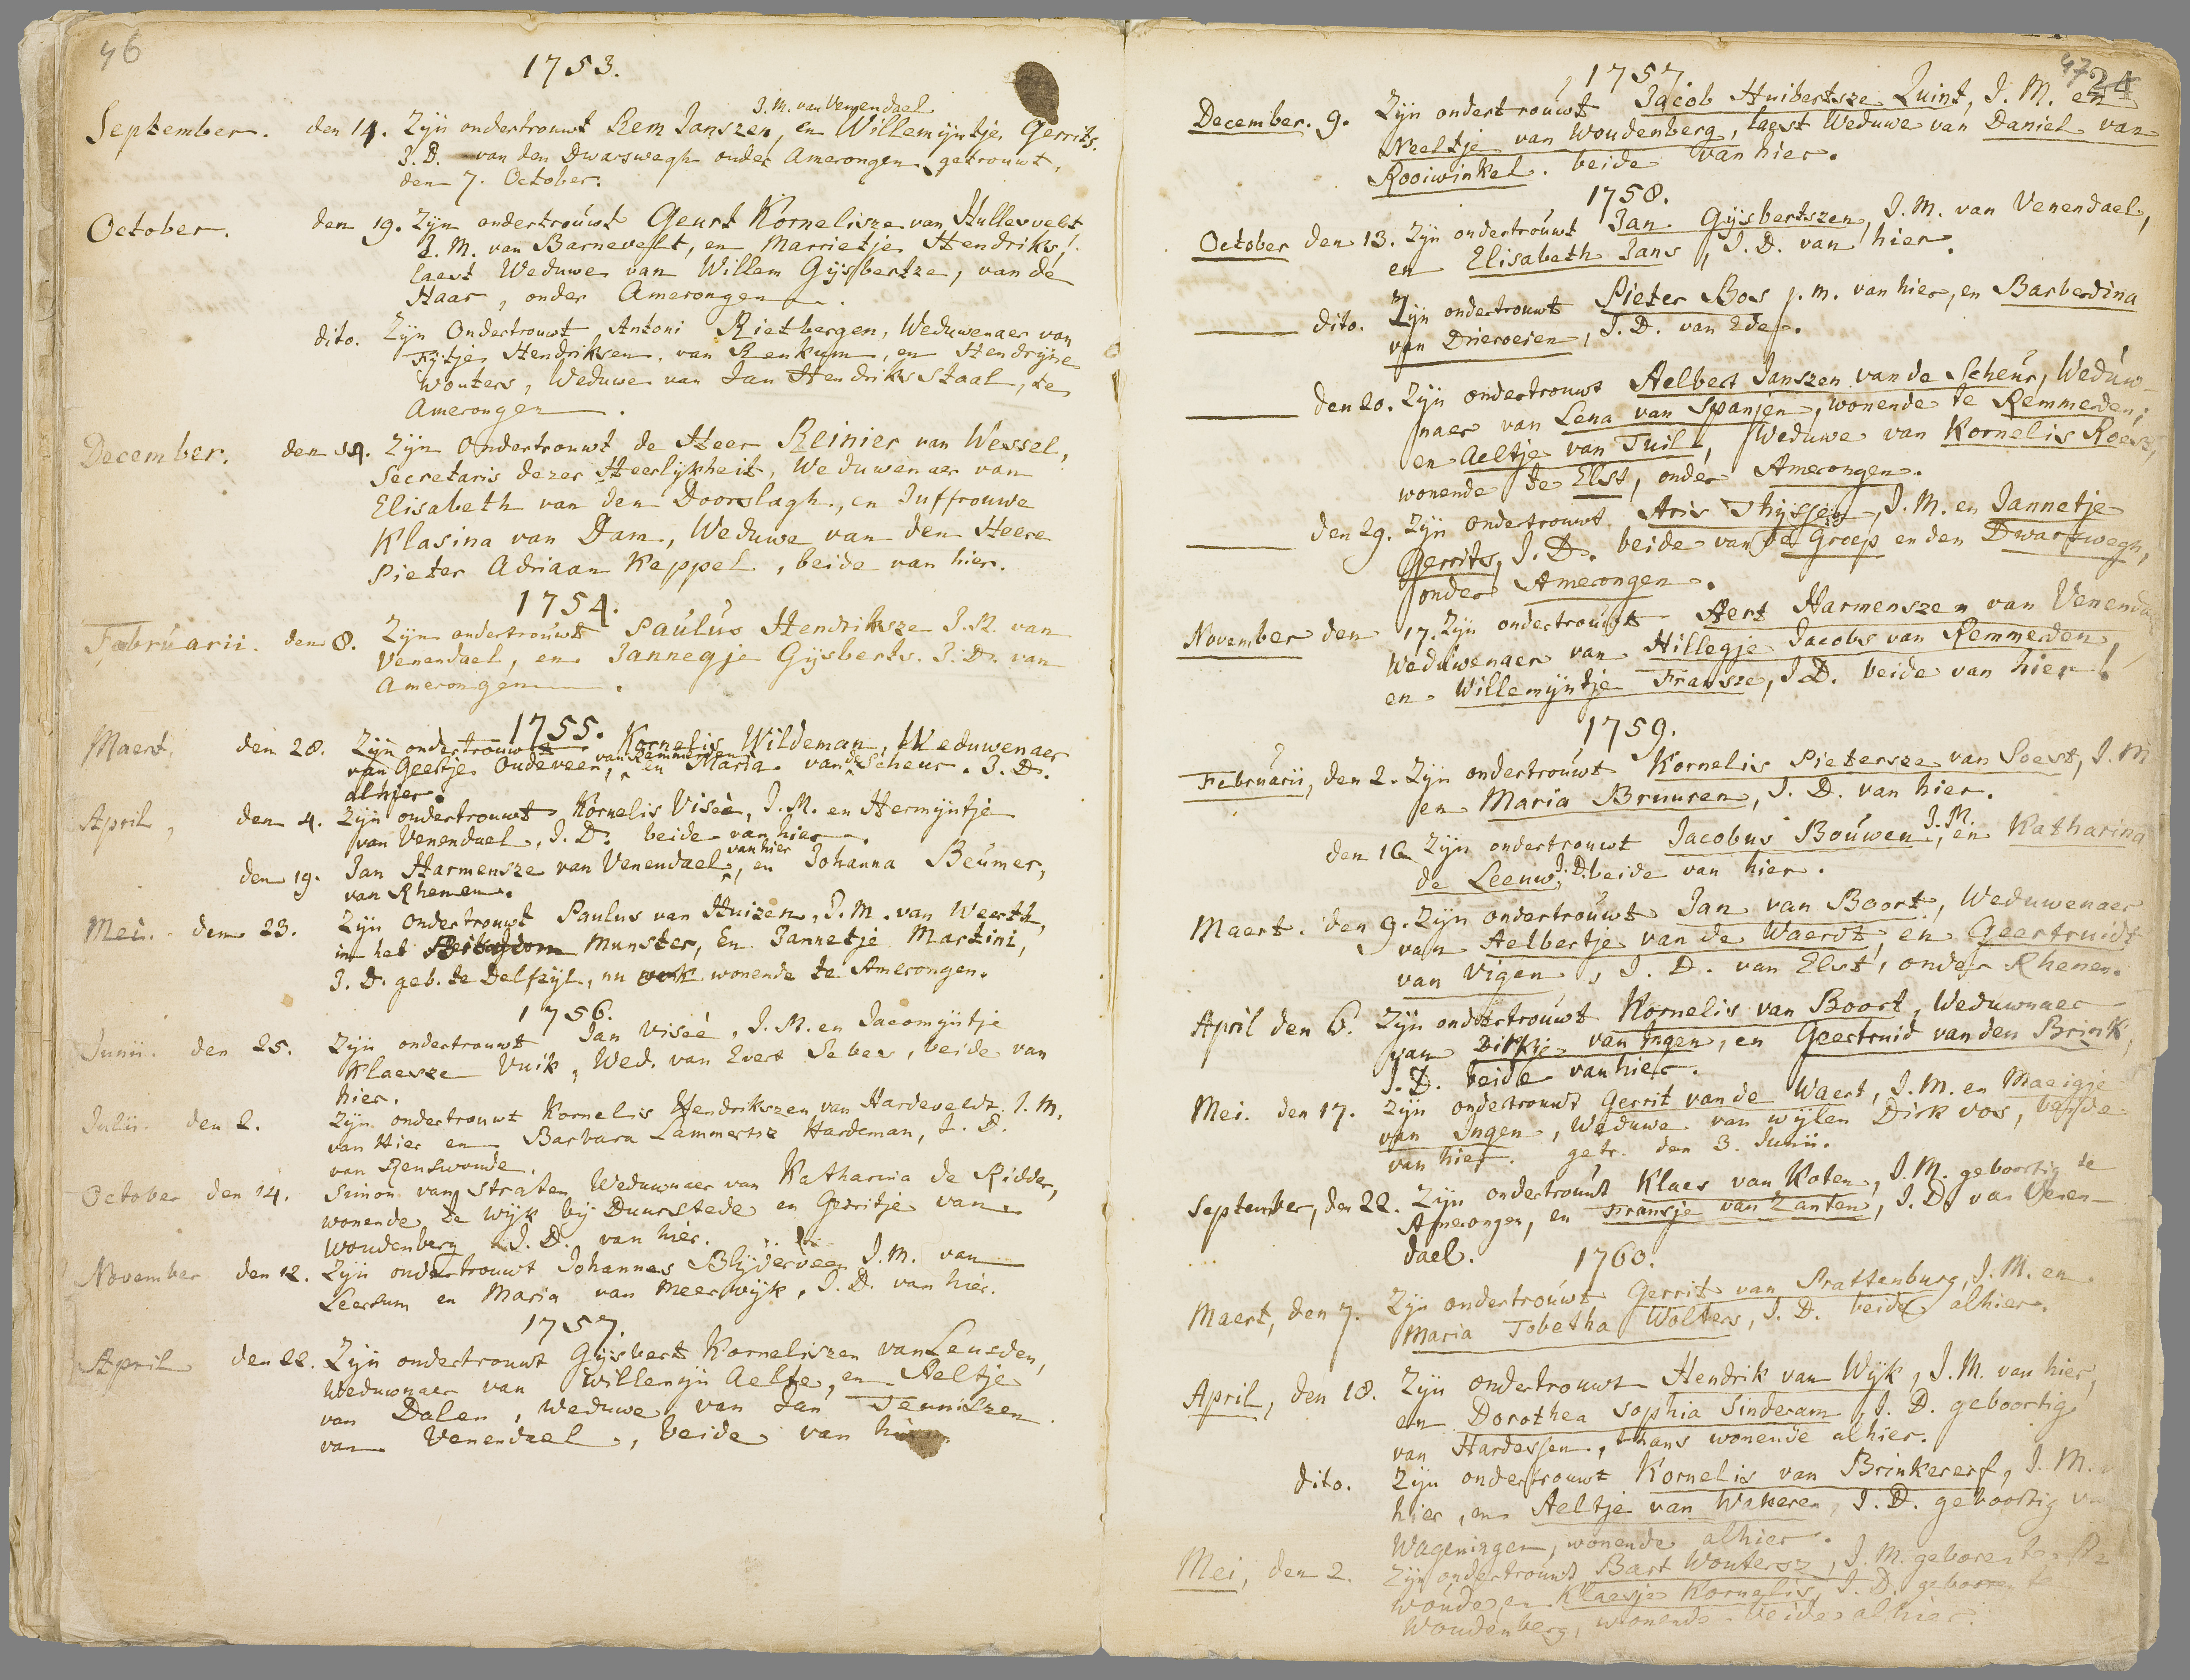 46
1753.
J. M. van Venendael
September. den 14. Zyn ondertrouwt Rem Janszen, en Willemijntje Gerrits.
J. D. van den Dwarswegh onder Amerongen getrouwt.
den 7. October.
October. den 19. Zyn ondertrouwt Geurt Kornelisze van Hullesvelt
J. M. van Barnevelt, en Marrietje Hendriks,
laest Weduwe van Willem Gijsbertze, van de
Haar, onder Amerongen.
dito. Zyn Ondertrouwt Antoni Rietbergen, Weduwenaer van
Fytje Hendriksen. van Renkum, en Hendrijne
Wouters, Weduwe van Jan Hendriks Staal, te
Amerongen.
December. den 14. Zyn Ondertrouwt de Heer Reinier van Wessel,
Secretaris dezer Heerlijkheit, Weduwenaer van
Elisabeth van den Doorslagh, en Juffrouwe
Klasina van Dam, Weduwe van den Heere
Pieter Adriaan Keppel, beide van hier.
1754.
Februarii. den 8. Zyn ondertrouwt Paulus Hendriksze J. M. van
Venendael, en Jannegje Gijsberts. J. D. van
Amerongen.
1755.
Maert. den 28. Zijn ondertrouwt Kornelis Wildeman, Weduwenaer
van Geertje Oudeveen, van Remmerden en Maria van de Scheur. J. D.
alhier.
April, den 4. Zijn ondertrouwt Kornelis Viseè, J. M. en Hermijntje
van Venendael, J. D. beide van hier.
den 19. Jan Harmensze van Venendael van hier, en Johanna Beumer,
van Rhenen.
Mei. den 23. Zijn ondertrouwt Paulus van Huizen, J. M. van Weerth,
in het Munster, En Jannetje Martini,
J. D. geb. te Delfzijl, nu wonende te Amerongen.
1756.
Junii. den 25. Zijn ondertrouwt Jan Viseè, J. M. en Jacomijntje
Klaesze Vuik, Wed. van Evert Sebes, beide van
hier.
Julii. den 2. Zijn ondertrouwt Kornelis Hendrikszen van Hardeveldt J. M.
van Hier en Barbara Lammertsz Hardeman, J. D.
van Renswoude.
October den 14. Simon van Straten Weduwnaer van Katharina de Ridder,
wonende te Wijk bij Duurstede en Gerritje van
Woudenberg J. D. van hier.
November den 12. Zijn ondertrouwt Johannes Blijderveen J. M. van
Leersum en Maria van Meerwijk, J. D. van hier.
1757.
April den 22. Zijn ondertrouwt Gijsbert Korneliszen van Leusden,
Weduwnaer van Willemijn Aelte, en Aeltje
van Dalen, Weduwe van Jan Teuniszen
van Venendael, beide van hier
47 24
1757.
December. 9. Zijn ondertrouwt Jacob Huibertsze Quint, J. M. en
Neeltje van Woudenberg, laest Weduwe van Daniel van
Rooiwinkel. beide van hier.
1758.
October den 13. Zijn ondertrouwt Jan Gijsbertszen, J. M. van Venendael,
en Elisabeth Jans, J. D. van hier.
dito. Zijn ondertrouwt Pieter Bos j. m. van hier, en Barberdina
van Drieroeien, J. D. van Ede.
den 20. Zijn ondertrouwt Aelbert Janszen van de Scheur, Weduw-
naer van Lena van Spanjen, wonende te Remmerden;
en Aeltje van Tuil, Weduwe van Kornelis Roesz,
wonende te Elst, onder Amerongen.
den 29. Zijn ondertrouwt Aris Thijssen, J. M. en Jannetje
Gerrits, J. D. beide van de Groep en den Dwarswegh,
onder Amerongen.
November den 17. Zijn ondertrouwt Aert Harmenszen van Venendael
Weduwenaer van Hillegje Jacobs van Remmerden,
en Willemijntje Fransze, J D. beide van hier.
1759.
Februarii, den 2. Zijn ondertrouwt Kornelis Pietersze van Soest, J. M
en Maria Bruuren, J. D. van hier.
den 16 Zijn ondertrouwt Jacobus Bouwen J. M., en Katharina
de Leeuw, J. D. beide van hier.
Maert. den 9. Zijn ondertrouwt Jan van Boort, Weduwenaer
van Aelbertje van de Waerdt, en Geertruidt
van Vigen, J. D. van Elst, onder Rhenen.
April den 6. Zijn ondertrouwt Kornelis van Boort, Weduwnaer
van Dirkje van Ingen, en Geertruid van den Brink,
J. D. beide van hier.
Mei. den 17. Zijn ondertrouwt Gerrit van de Waert, J. M. en Maeigje
van Ingen, Weduwe van wijlen Dirk Vos, beide
van hier. getr. den 3. Junii.
September, den 22. Zijn ondertrouwt Klaes van Koten, J. M. geboortig te
Amerongen, en Fransje van Zanten, J. D. van Venen-
dael.
1760.
Maert, den 7. Zijn ondertrouwt Gerrit van Prattenburg, J. M. en
Maria Tobetha Wolters, J. D. beide alhier.
April, den 18. Zijn ondertrouwt Hendrik van Wijk, J. M. van hier,
en Dorothea Sophia Sinderam, J. D. geboortig
van Hardessen, thans wonende alhier.
dito. Zijn ondertrouwt Kornelis van Brinkererf, J. M.
hier, en Aeltje van Wakeren, J. D. geboortig
Wageningen, wonende alhier.
Mei, den 2. Zijn ondertrouwt Bart Woutersz, J. M. geboren te
woude, en Klaesje Kornelis, J. D. geboren te
Woudenberg, wonende beide alhier.